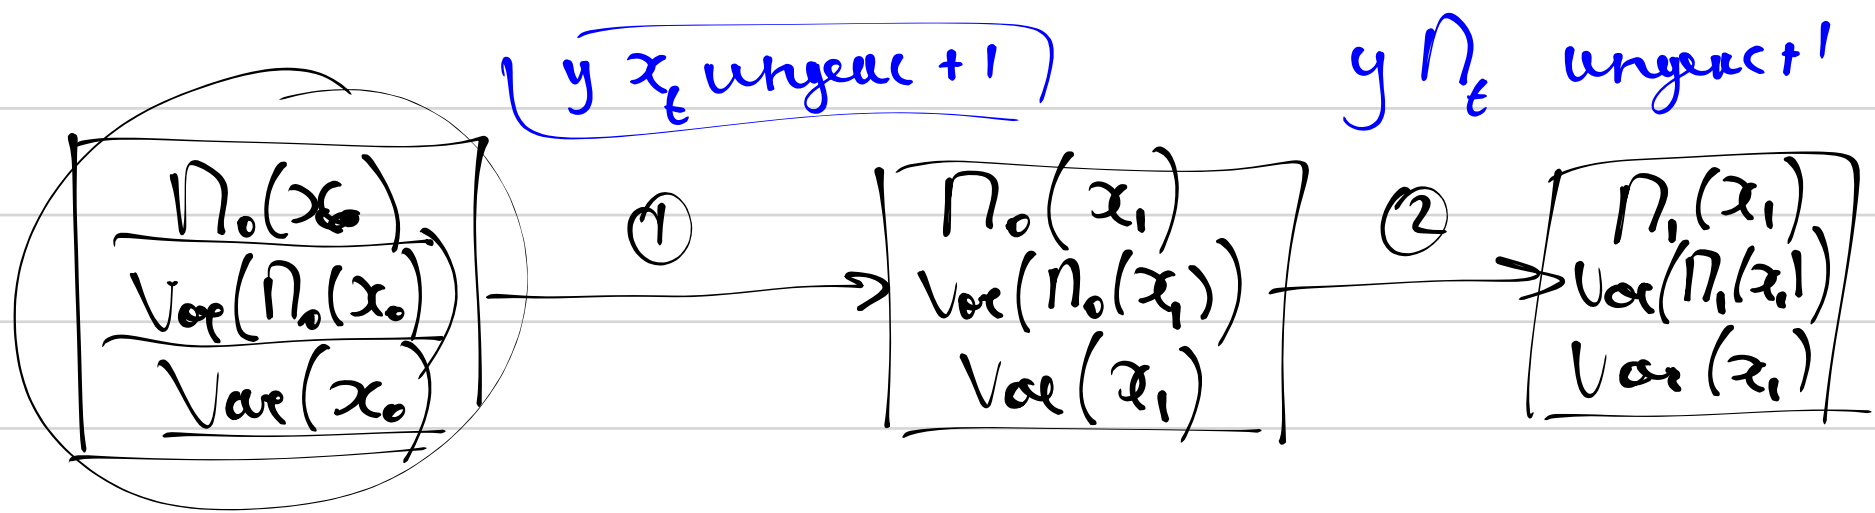 у x_t индекс +1
у П_t индекс +1
П₀(x₀)
Var(П₀(x₀))
Var(x₀)
①
П₀(x₁)
Var(П₀(x₁))
Var(x₁)
②
П₁(x₁)
Var(П₁(x₁))
Var(x₁)